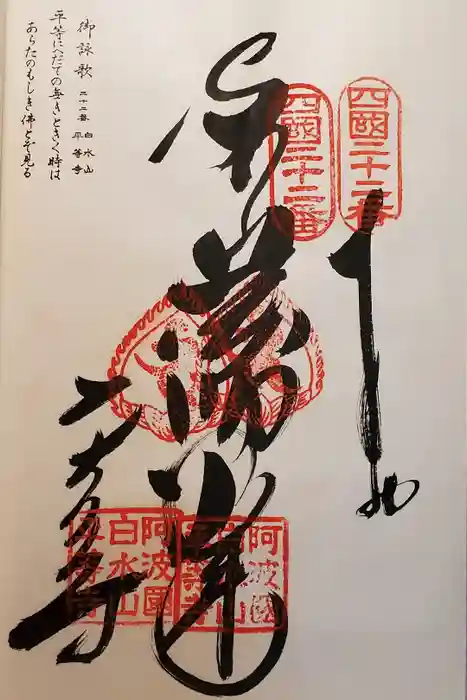 四國二十二番
四國二十二番
平等寺
阿波國
白水山
平等寺
阿波國
白水山
平等寺
御詠歌 二十二番 白水山 平等寺
平等にへだての無きときく時は
あらたのもしき佛とぞ見る